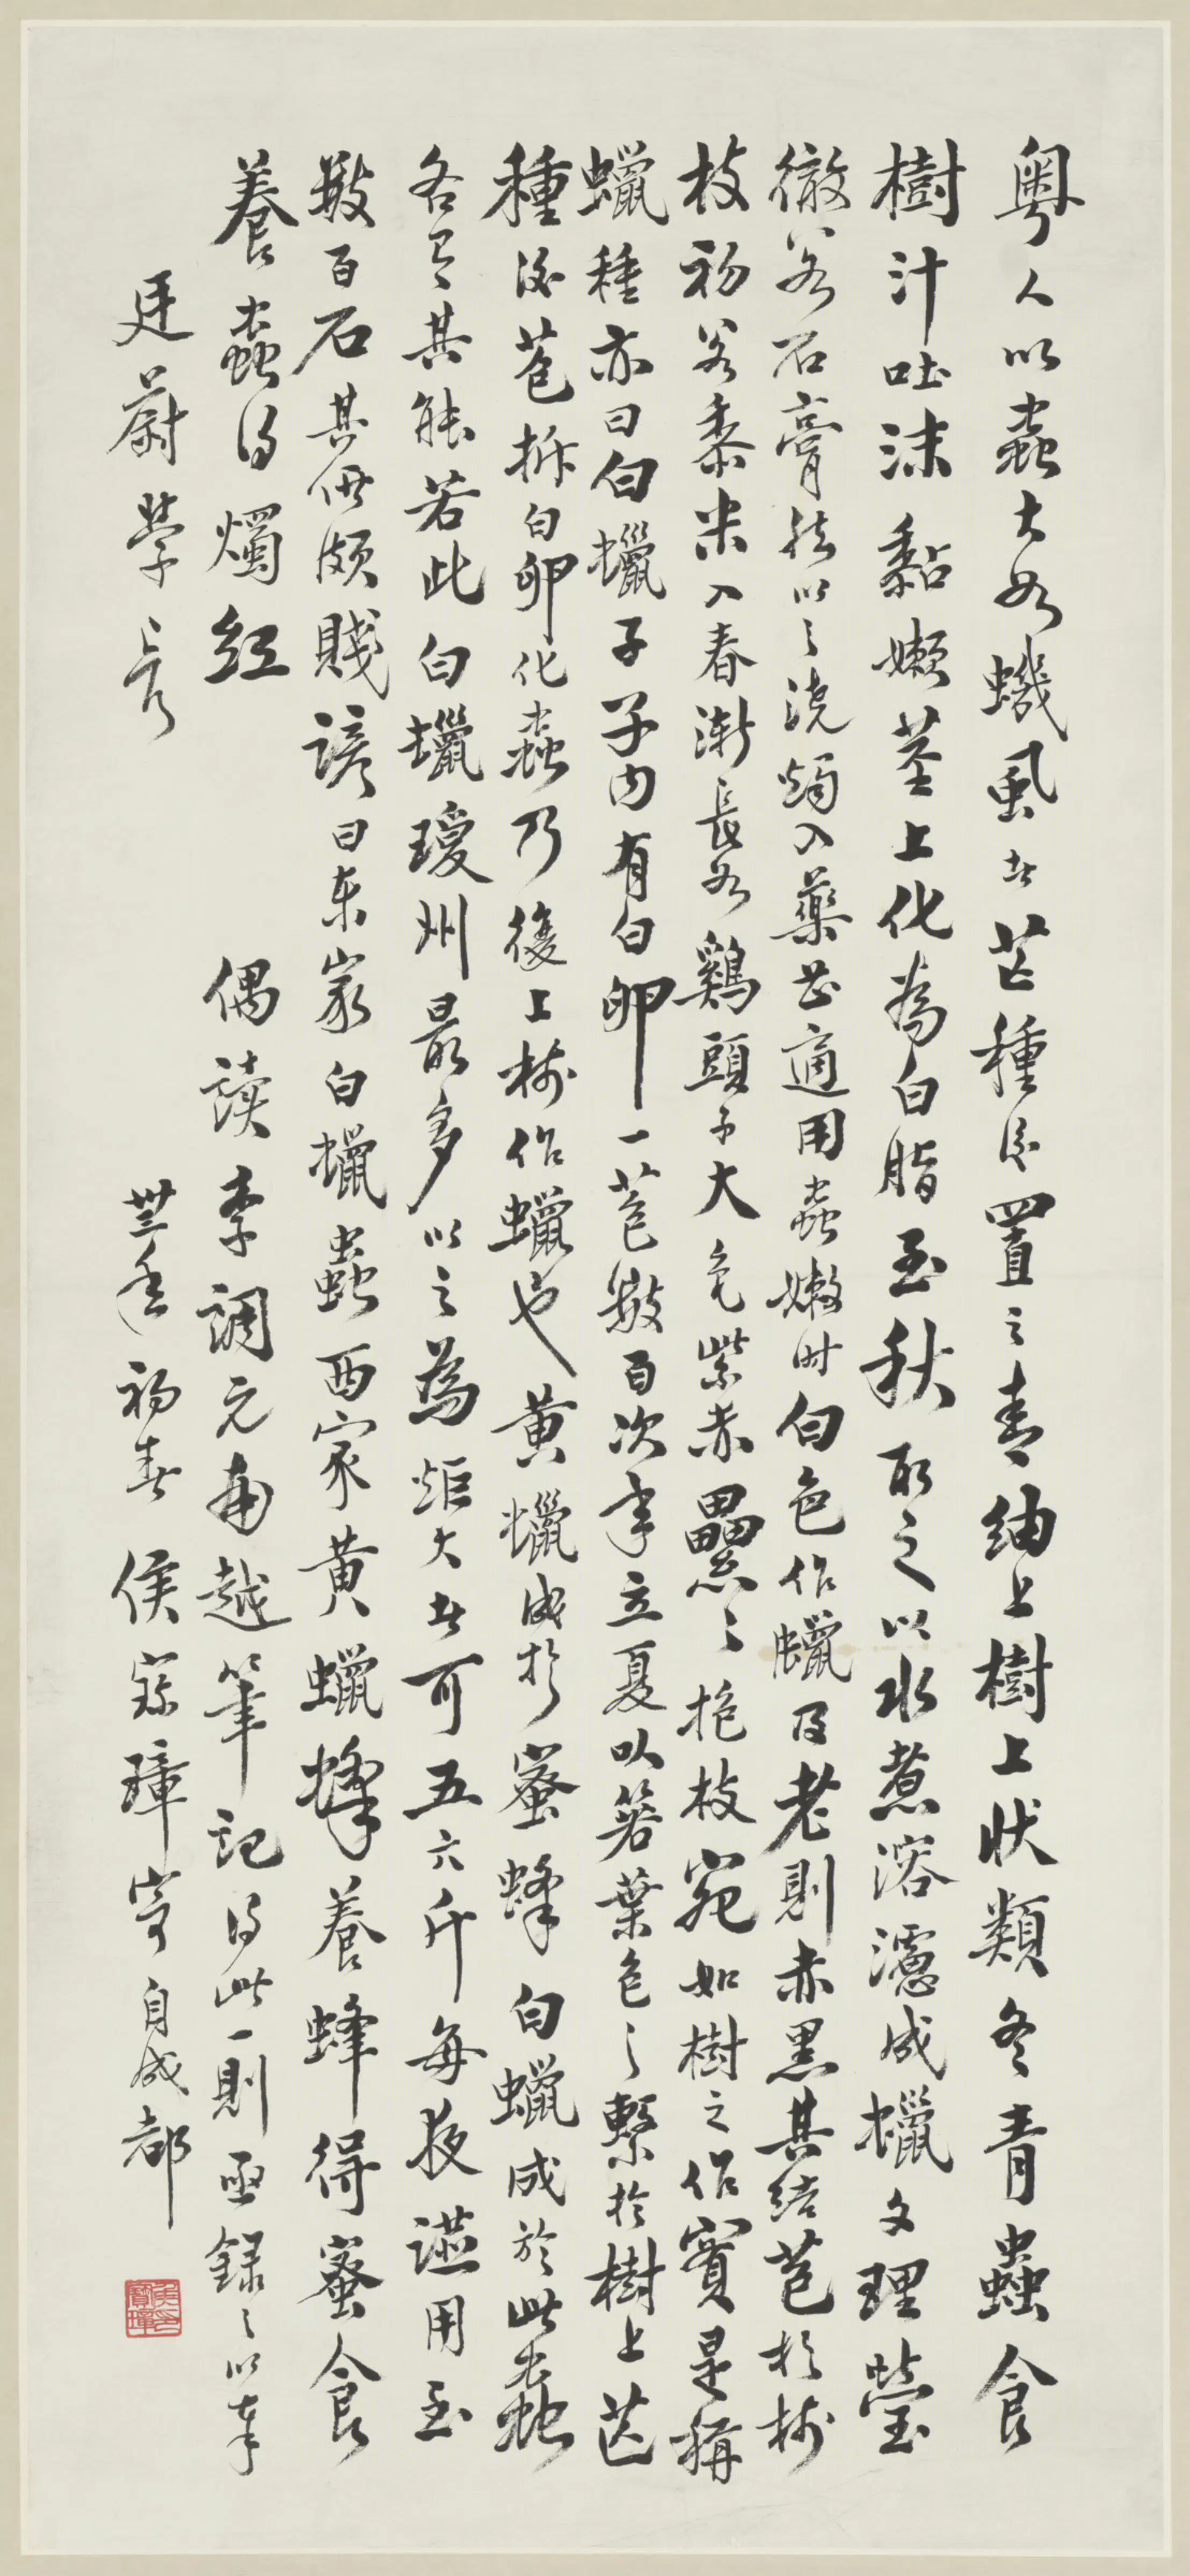 粵人以蟲大如蟣蝨者芒種後置之青紬上樹上狀類冬青蟲食
樹汁吐沫黏嫩莖上化為白脂至秋取之以水煮溶濾成蠟文理瑩
徹若石膏然以之澆燭入藥甚適用蟲嫩時白色作蠟及老則赤黑其結苞於樹
枝初若黍米入春漸長如鷄頭子大色紫赤纍纍抱枝宛如樹之作實是稱
蠟種亦曰白蠟子子內有白卵一苞數百次年立夏以箬葉包之繫於樹上芒
種後苞拆白卵化蟲乃復上樹作蠟也黄蠟成於蜜蜂白蠟成於此蟲
各有其能若此白蠟瓊州最多以之為炬大者可五六斤每夜讌用至
數百石其價頗賤諺曰東家白蠟蟲西家黄蠟蜂養蜂得蜜食
養蟲得燭紅　偶讀李調元南越筆記得此一則亟録之以奉
廷蔚學長　卅三年初春侯寶璋寄自成都
侯寶璋